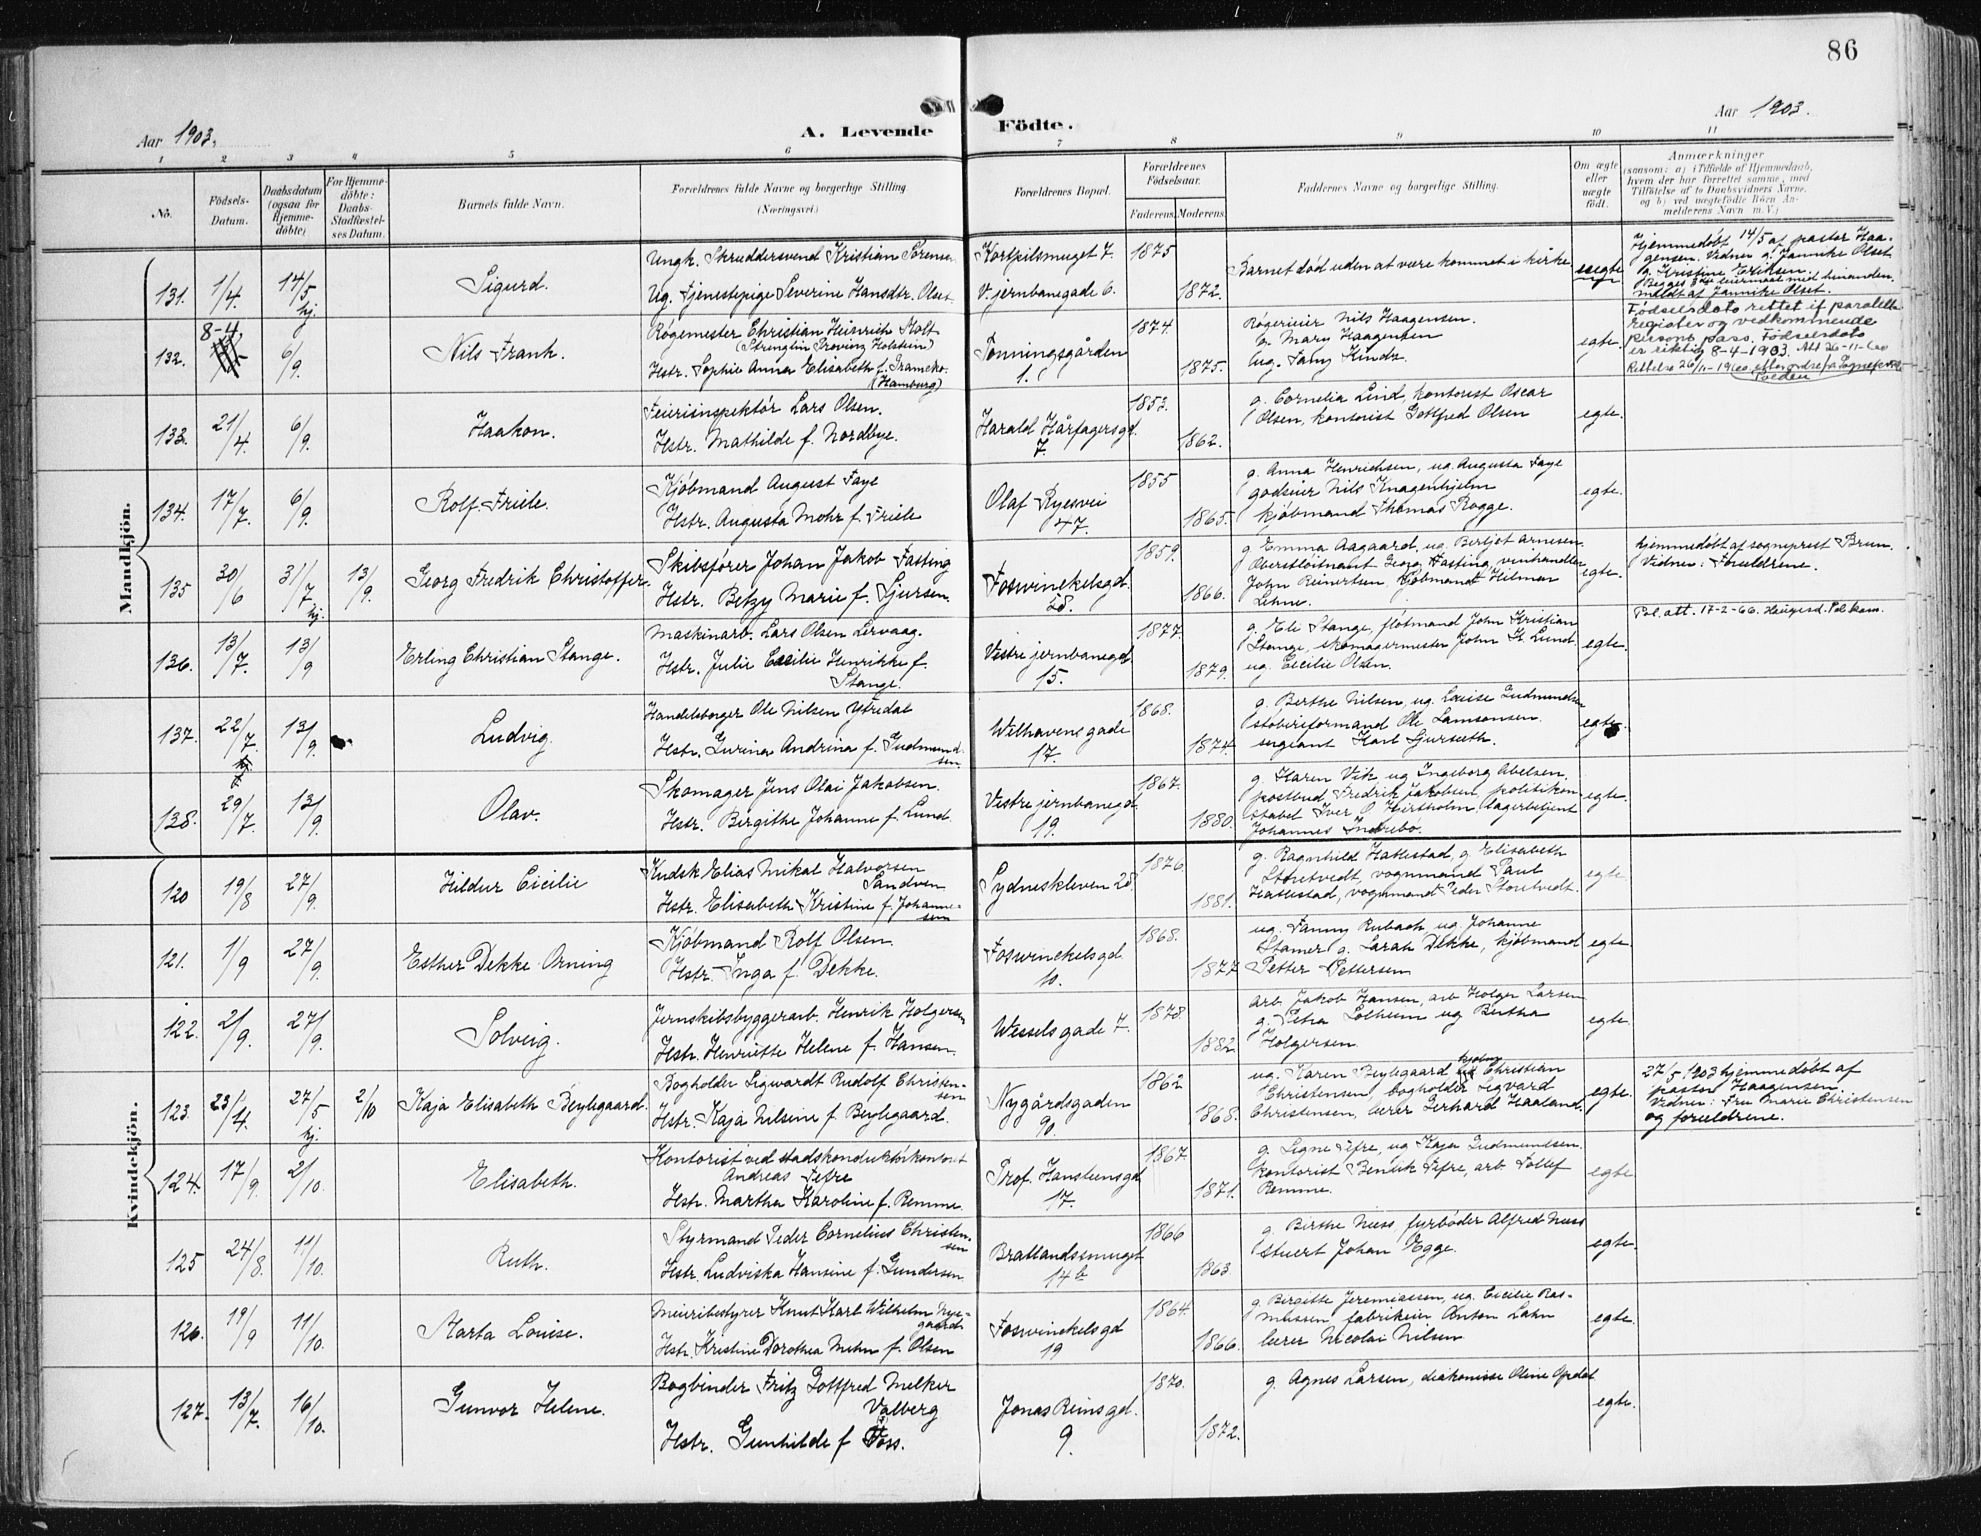 86
Aar 1903.
A. Levende Födte.
Aar 1903.
1 2 3 4 5 6 7 8 9 10 11
No.
Födsels-
Datum.
Daabsdatum
(ogsaa for
Hjemme-
döbte)
For Hjemme-
döbte:
Daabs-
Stadfæstel-
ses Datum.
Barnets fulde Navn.
Forældrenes fulde Navne og borgerlige Stilling
(Næringsvei.)
Forældrenes Bopæl.
Forældrenes
Födselsaar.
Faderens. Moderens.
Faddernes Navne og borgerlige Stilling.
Om ægte
eller
uægte
födt.
Anmærkninger
(saasom: a) i Tilfælde af Hjemmedaab,
hvem der har forrettet samme, med
Tilföielse af to Daabsvidners Navne.
og b) ved uægtefödte Börn An-
melderens Navn m. V.)
Mandkjön.
131. 1/4. 14/5 hj. Sigurd.
Ungk. Skræddersvend Kristian Sörensen
Ug. Tjenestepige Severine Hansdtr. Olset
Kortpilsmuget 7.
V. jernbanegade 6.
1875
1872.
Barnet död uden at være kommet i kirke
uegte
Hjemmedöbt 14/5 af pastor Haa-
gensen. Vidner g. Jannike Olset
g. Kristine Eriksen.
meldt af Jannike Olset.
132. 8-4. 6/9. Nils Frank.
Røgemester Christian Heinrich Molt
(Strenglin Provinz Holstein)
Hstr. Sophie Anna Elisabeth f. Grameko.
(Hamburg)
Tonningsgården
1.
1874
1875.
Røgerieier Nils Haagensen.
g. Mary Haagensen
ug. Fany Kinds
egte.
Födselsdato rettet if parallell
register og vedkommende
persons pass. Födselsdato
er riktig 8-4-1903. Att 26-11-60
133. 21/4. 6/9. Haakon.
Feierinspektör Lars Olsen.
Hstr. Mathilde f. Nordbye.
Harald Hårfagersgt.
7.
1853.
1862.
g. Cornelia Lind, kontorist Oscar
Olsen, kontorist Gottfred Olsen
egte.
134. 17/7. 6/9. Rolf Friele.
Kjöbmand August Faye
Hstr. Augusta Mohr f. Friele
Olaf Ryesvei
47.
1855
1865.
g. Anna Henrichsen, ug. Augusta Faye
godseier Nils Knagenhjelm
kjöbmand Thomas Rogge.
egte.
135 30/6 31/7 hj. 13/9. Georg Fredrik Christoffer.
Skibsförer Johan Jakob Fasting
Hstr. Betzy Marie f. Sjursen.
Foswinckelsgd.
58.
1859.
1866.
g. Emma Aagaard, ug. Bertjot Arnesen
Oberstlöitnant Georg Fasting, vinhandler
John Reinertsen, kjöbmand Hilmar
Lehne.
egte.
hjemmedöbt af sogneprest Brun.
Vidner: Forældrene.
136. 13/7. 13/9 Erling Christian Stange.
Maskinarb. Lars Olsen Lervaag.
Hstr. Julie Cecilie Henrikke f.
Stange.
Vestre jernbanegd
15.
1877.
1879.
g. Eli Stange, flötmand John Kristian
Stange, skomagermester John H. Lund.
ug. Cecilie Olsen.
egte.
Pol. att. 17-2-66. Haugesd. Pol.kam.
137. 22/7. 13/9. Ludvig.
Handelsborger Ole Nilsen Ytredal
Hstr. Gurina Andrina f. Gudmund-
sen.
Wilhavens gade
17.
1868.
1874.
g. Berthe Nilsen, ug. Louise Gudmundsen
støberiformand Ole Samsonsen.
sergeant Karl Gjersæth.
egte.
138. 29/7. 13/9. Olav.
Skomager Jens Olai Jakobsen.
Hstr. Birgithe Johanne f. Lund.
Vestre jernbanegd.
19.
1867.
1880.
g. Karen Vik ug Ingeborg Abelsen.
postbud Fredrik Jakobsen, politikon-
stabel Iver O. Hirtholm, lagerbetjent
Johannes Indrebö.
egte.
Kvindekjön.
120 19/8 27/9. Hildur Cicilie
Kudsk Elias Mikal Halvorsen
Sandven
Hstr. Elisabeth Kristine f. Johanne-
sen
Sydneskleven 28.
1876
1881.
g. Ragnhild Hattestad, g. Elisabeth
Storetvedt, vognmand Paul
Hattestad, vognmand Peder Storetvedt.
egte
121. 1/9 27/9. Esther Dekke Orning
Kjöbmand Rolf Olsen.
Hstr. Inga f. Dekke.
Foswinckelsgd.
10.
1868.
1877
ug. Fanny Rubach ug Johanne
Stamer g. Sarah Dekke, kjöbmand
Petter Pettersen
egte.
122. 2/9. 27/9. Solveig.
Jernskibsbyggerarb. Henrik Holgersen
Hstr. Henriette Helene f. Hansen.
Wessels gade 7.
1878.
1882
arb. Jakob Hansen, arb Holger Larsen
g. Petra Solheim ug Bertha
Holgersen.
egte.
123. 23/4. 27/5 hj. 2/10 Kaja Elisabeth Beylegaard.
Bogholder Sigwardt Rudolf Christen-
sen
Hstr. Kaja Nilsine f. Beylegaard.
Nygårdsgaden
90.
1862
1868.
ug. Karen Beylegaard Christian
Christensen, bogholder Sigvard
Christensen, lærer Gerhard Haaland.
egte.
27/5 1903 hjemmedöbt af
pastor Haagensen.
Vidner: Fru Marie Christensen
og forældrene.
124. 17/9. 2/10. Elisabeth.
Kontorist ved stadskonduktörkontoret
Andreas Tefre
Hstr. Martha Karoline f. Remme.
Prof. Hansteensgd
17.
1867
1871.
g. Signe Tefre, ug Kaja Gudmundsen.
kontorist Benrik Tefre, arb. Tollef
Remme.
egte
125 24/8. 11/10. Ruth.
Styrmand Peder Cornelius Christen-
sen
Hstr. Ludviska Hansine f. Gundersen
Bratlandssmuget
14 b
1866
1863
g. Birthe Næss, fyrböder Alfred Næss
stuert Johan Egge.
egte.
126. 19/9 11/10. Marta Louise.
Meieribestyrer Knut Karl Wilhelm Nye-
gaard
Hstr. Kristine Dorothea Mehn f. Olsen
Foswinckelsgd
19
1864.
1866.
g. Birgitte Jeremiassen, ug. Cecilie Ras-
mussen, fabrikeier Anton Lahn
lærer Nicolai Nilsen
egte.
127. 13/7. 16/10. Gunvor Helene.
Bogbinder Fritz Gottfred Melker
Valberg
Hstr. Gunhilde f Foss.
Jonas Reinsgd.
9.
1870.
1872.
g. Agnes Larsen, diakonisse Oline Opdal
egte.